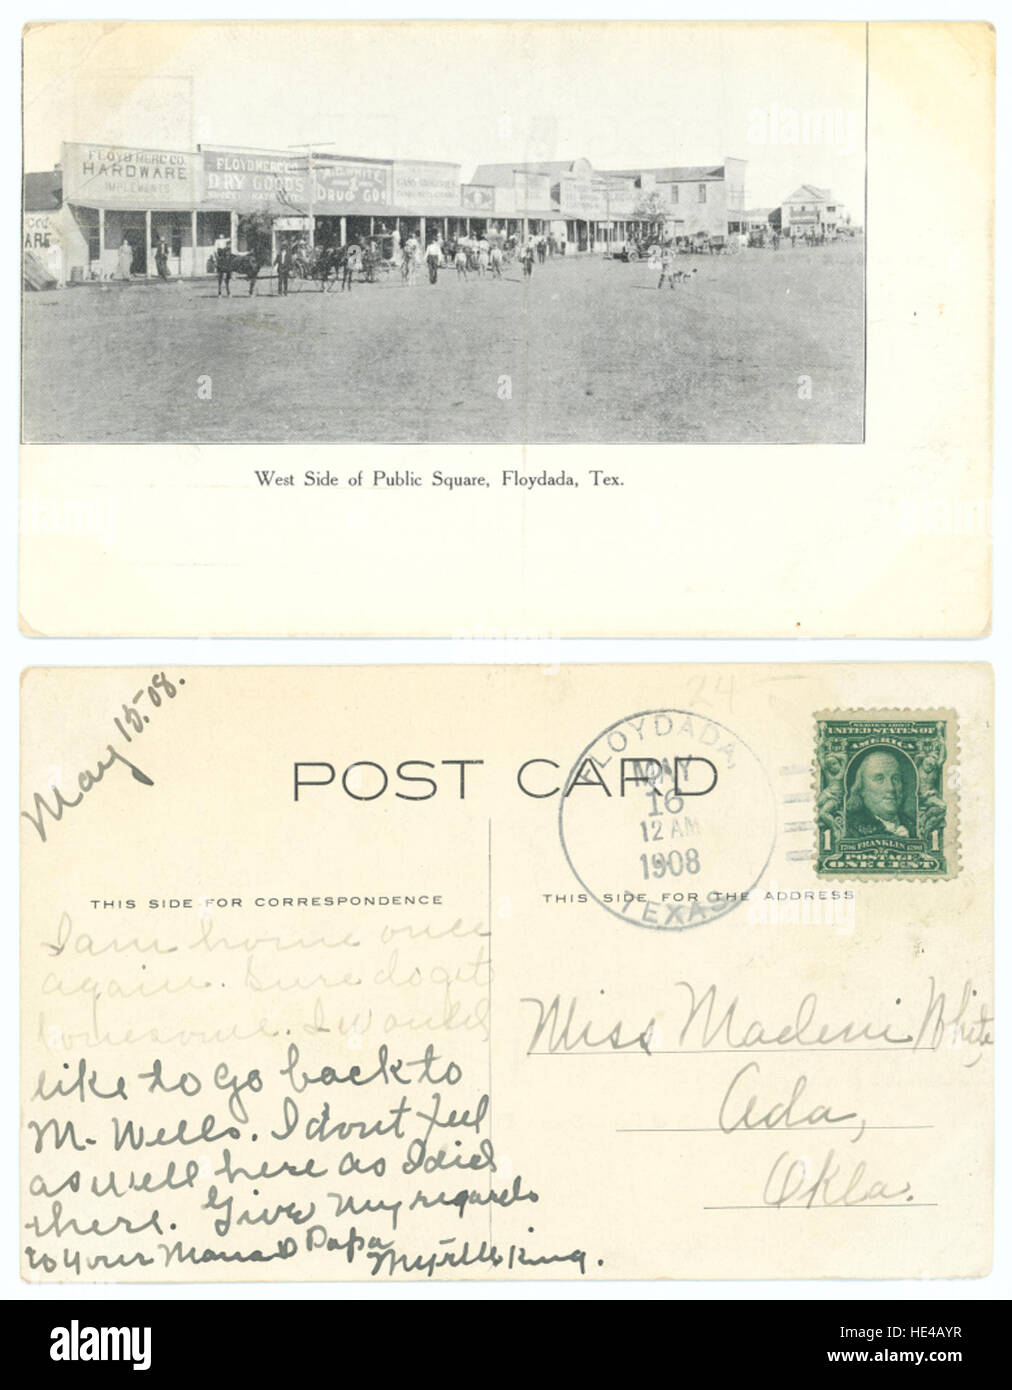 FLOYD MERC CO.
HARDWARE
IMPLEMENTS
FLOYD MERC CO.
DRY GOODS
DRUG CO.
ARE
West Side of Public Square, Floydada, Tex.
alamy
a a a a
May 15-08.
POST CARD
FLOYDADA,
MAY
16
12 AM
1908
TEXAS
SERIES 1902
UNITED STATES OF
AMERICA
1 1
1706 FRANKLIN 1790
POSTAGE
ONE CENT
THIS SIDE FOR CORRESPONDENCE
THIS SIDE FOR THE ADDRESS
I am home once
again. Sure do get
lonesome. I would
like to go back to
M- Wells. I dont feel
as well here as I did
there. Give my regards
to your Mama & Papa
Myrtle King.
Miss Madeni White,
Ada,
Okla.
alamy
Image ID: HE4AYR
www.alamy.com